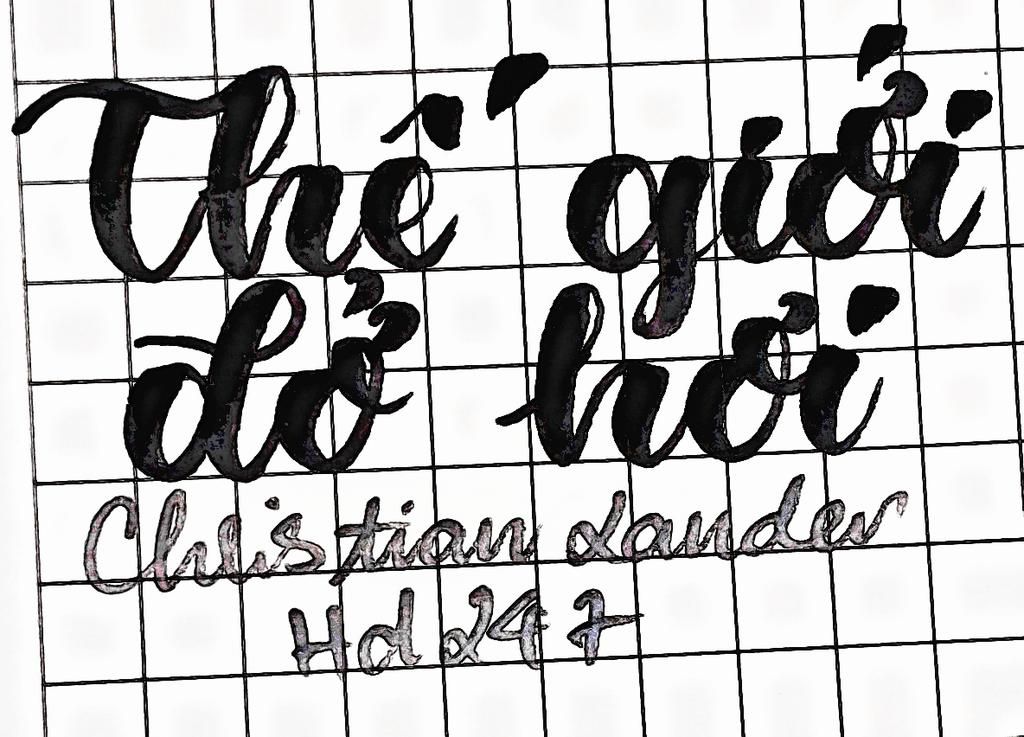 Thế giới
dở hơi
Christian Lander
Hd 247